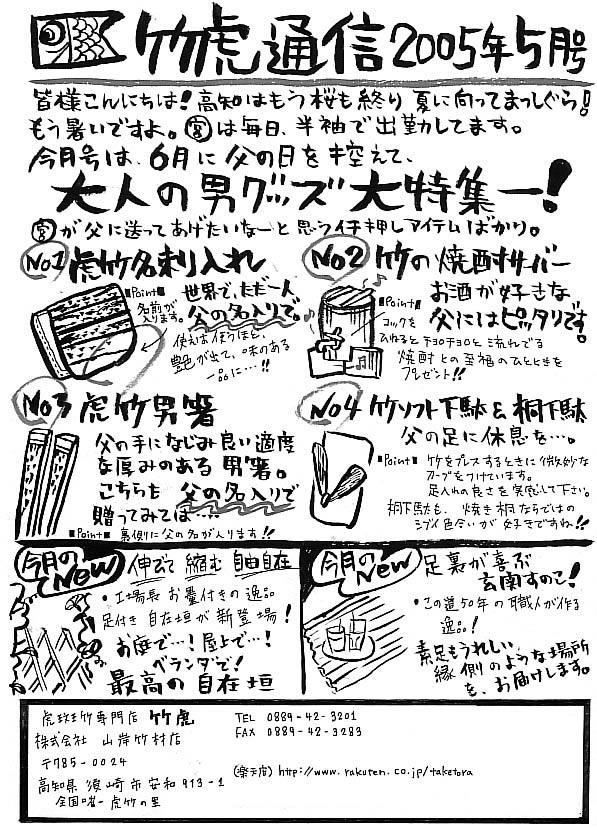 竹虎通信2005年5月号
皆様こんにちは!高知はもう桜も終り夏に向ってまっしぐら!
もう暑いですよ。宮は毎日、半袖で出勤してます。
今月号は、6月に父の日を控えて、
大人の男グッズ大特集ー!
宮が父に送ってあげたいなーと思うイチ押しアイテムばかり。
No1 虎竹名刺入れ
■Point■
名前が
入ります。
世界で、ただ一人
父の名入りで
使えば使うほど、
艶が出て、味のある
一品に…!!
No2 竹の焼酎サーバー
■Point■
コックを
ひねるとチョロチョロと流れでる
焼酎との至福のひとときを
プレゼント!!
お酒が好きな
父にはピッタリです。
No3 虎竹男箸
父の手になじみ良い適度
な厚みのある男箸。
こちらも父の名入りで
贈ってみては……
■Point■ 裏側に父の名が入ります!!
No4 竹ソフト下駄&桐下駄
父の足に休息を…。
■Point■ 竹をプレスするときに微妙な
カーブをつけています。
足入れの良さを実感して下さい。
桐下駄も、焼き桐ならではの
シブイ色合いが好きですね!!
今月のNew
伸びて縮む自由自在
・工場長お墨付きの逸品
足付き自在垣が新登場!
お庭で…!屋上で…!
ベランダで!
最高の自在垣
今月のNew
足裏が喜ぶ
玄関すのこ!
・この道50年の職人が作る
逸品!
素足もうれしい
縁側のような場所
を、お届けします。
虎斑竹専門店 竹虎
株式会社 山岸竹材店
〒785-0024
高知県須崎市安和913-1
全国唯一虎竹の里
TEL 0889-42-3201
FAX 0889-42-3283
(楽天店) http://www.rakuten.co.jp/taketora